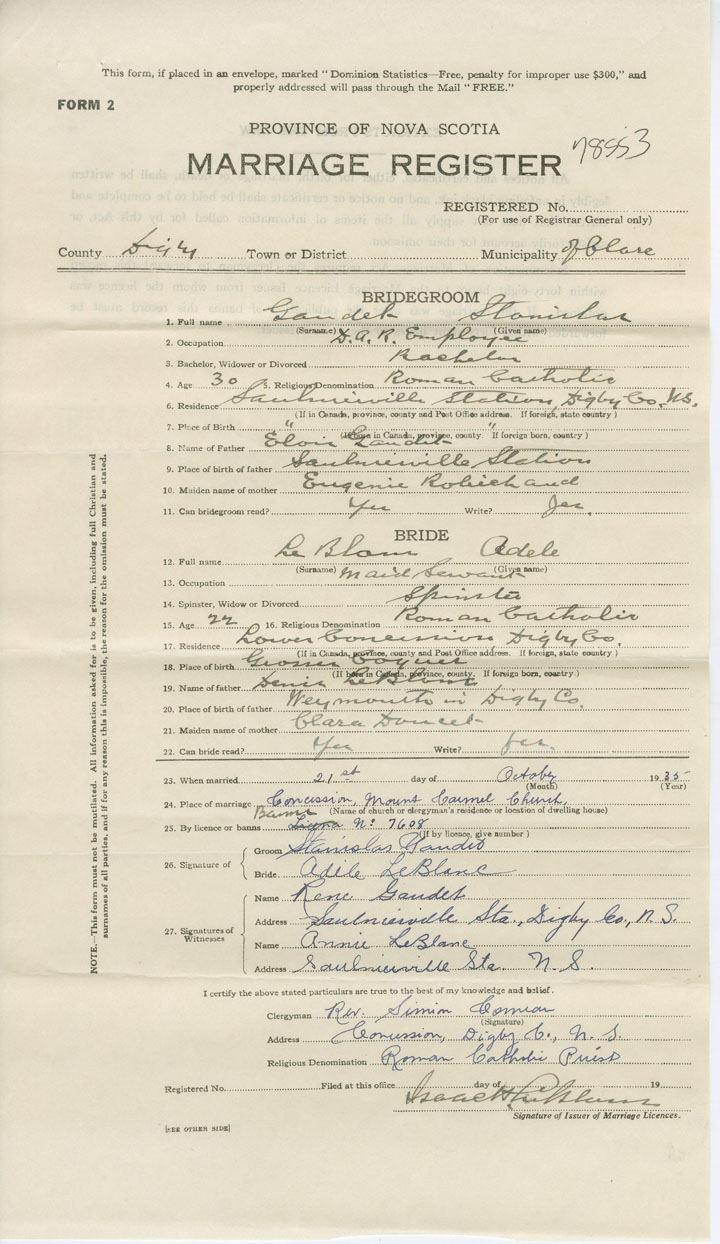 This form, if placed in an envelope, marked "Dominion Statistics—Free, penalty for improper use $300," and
properly addressed will pass through the Mail "FREE."
FORM 2
PROVINCE OF NOVA SCOTIA
MARRIAGE REGISTER 78553
REGISTERED No.
(For use of Registrar General only)
County Digby Town or District Municipality of Clare
BRIDEGROOM
1. Full name Gaudet Stanislas
(Surname) (Given name)
2. Occupation D.A.R. Employee
3. Bachelor, Widower or Divorced Bachelor
4. Age 30 5. Religious Denomination Roman Catholic
6. Residence Saulnierville Station, Digby Co., N.S.
(If in Canada, province, county and Post Office address. If foreign, state country)
7. Place of Birth " "
(If born in Canada, province, county. If foreign born, country)
8. Name of Father Eloi Gaudet
9. Place of birth of father Saulnierville Station
10. Maiden name of mother Eugenie Robichaud
11. Can bridegroom read? Yes Write? Yes.
BRIDE
12. Full name Le Blanc Adele
(Surname) (Given name)
13. Occupation Maid Servant
14. Spinster, Widow or Divorced Spinster
15. Age 22 16. Religious Denomination Roman Catholic
17. Residence Lower Concession Digby Co.
(If in Canada, province, county and Post Office address. If foreign, state country)
18. Place of birth Grosses Coques
(If born in Canada, province, county. If foreign born, country.)
19. Name of father Denis LeBlanc
20. Place of birth of father Weymouth in Digby Co.
21. Maiden name of mother Clara Doucet
22. Can bride read? Yes Write? Yes.
23. When married 21st day of October 1935
(Month) (Year)
24. Place of marriage Concession, Mount Carmel Church,
(Name of church or clergyman's residence or location of dwelling house)
Banns
25. By licence or banns No 7608
(If by licence, give number)
26. Signature of
Groom Stanislas Gaudet
Bride Adele LeBlanc
27. Signatures of Witnesses
Name Rene Gaudet
Address Saulnierville Sta., Digby Co., N.S.
Name Annie LeBlanc
Address Saulnierville Sta. N.S.
I certify the above stated particulars are true to the best of my knowledge and belief.
Clergyman Rev. Simion Comeau
(Signature)
Address Concession, Digby Co., N.S.
Religious Denomination Roman Catholic Priest
Registered No. Filed at this office day of 19
Isaac H. LeBlanc
Signature of Issuer of Marriage Licences.
[SEE OTHER SIDE]
NOTE.—This form must not be mutilated. All information asked for is to be given, including full Christian and
surnames of all parties, and if for any reason this is impossible, the reason for the omission must be stated.